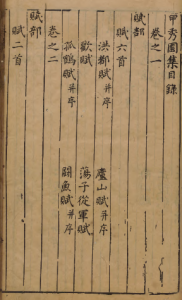 甲秀園集目錄
卷之一
賦部
賦六首
洪都賦并序
廬山賦并序
歡賦
蕩子從軍賦
孤鶴賦并序
鬪魚賦并序
卷之二
賦部
賦二首